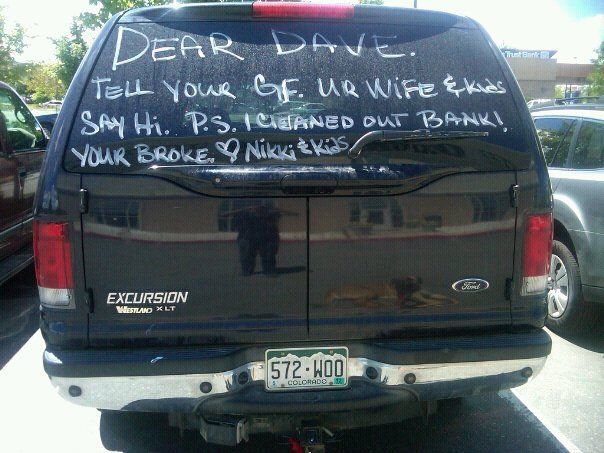 Trust Bank
DEAR DAVE.
TELL YOUR GF. UR WIFE & Kids
SAY Hi. P.S. I CLEANED OUT BANK!
YOUR BROKE. ♡ Nikki & Kids
EXCURSION
WESTLAND XLT
Ford
572·WOO
COLORADO